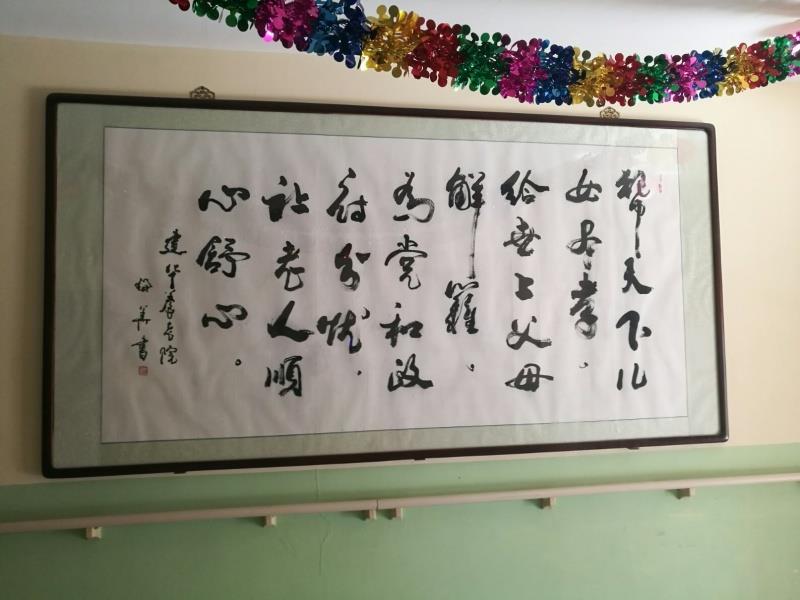 帮天下儿
女尽孝、
给世上父母
解難、
为党和政
府分忧、
让老人順
心舒心。
建华养老院
书